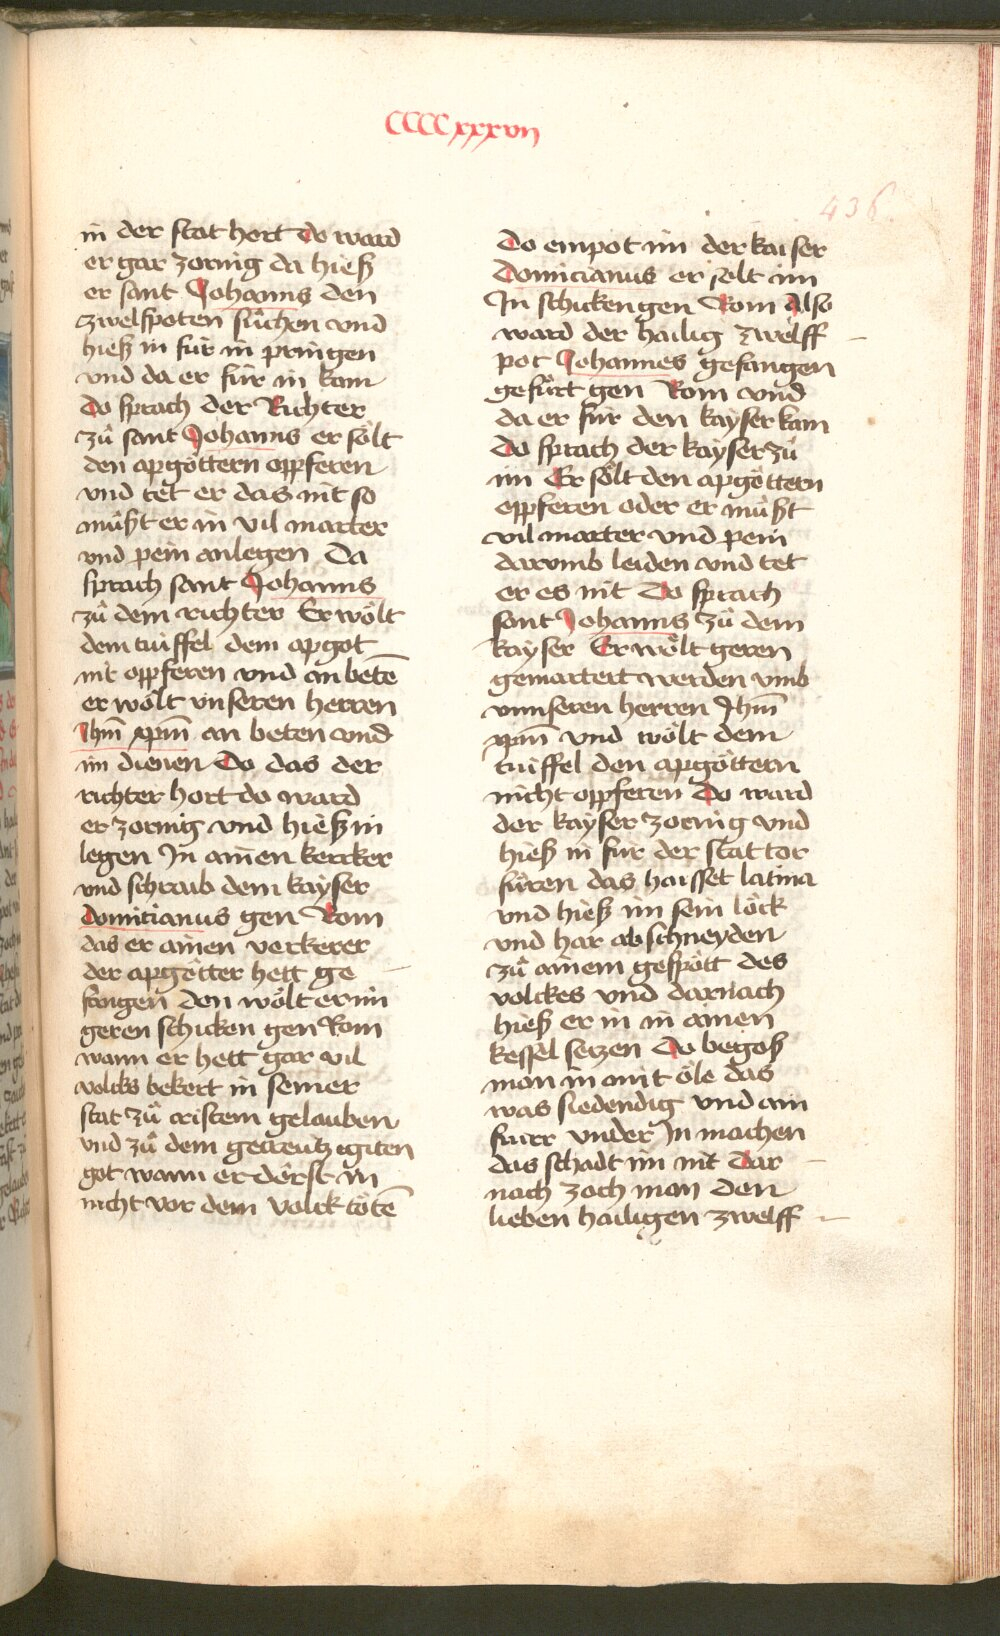 CCCCxxxvii
436.
in der stat hort do ward
er gar zornig da hieß
er sant Johanns den
zwelfpoten sůchen vnd
hieß in für in pringen
vnd da er für in kam
do sprach der Richter
zů sant Johanns er sölt
den apgöttern opferen
vnd tet er das nit so
müßt er in vil marter
vnd pein anlegen Da
sprach sant Johanns
zů dem richter Er wölt
dem tuiffel dem apgot
nit opferen vnd an betē
er wölt vnseren herren
Jhm̄ xpm̄ an beten vnd
im dienen Do das der
richter hort do ward
er zornig vnd hieß in
legen In ainen kercker
vnd schraib dem kayser
domicianus gen Rom
das er ainen verkerer
der apgötter hett ge
fangen den wölt er im
geren schicken gen Rom
wann er hett gar vil
volcks bekert in seiner
stat zů cristem gelauben
vnd zů dem gecreutzigiten
got wann er dörst in
nicht vor dem volck tötē
Do empot im der kaiser
Domicianus er solt im
In schicken gen Rom Also
ward der hailig zwelff
pot Johannes gefangen
gefürt gen Rom vnd
da er für den kayser kam
Do sprach der kayser zů
im Er sölt den apgöttern
opferen oder er müßt
vil marter vnd pein
darvmb leiden vnd tet
er es nit Do sprach
sant Johanns zů dem
kayser Er wölt geren
gemartert werden vmb
vnnseren herren Jhm̄
xpm̄ vnd wölt dem
tuiffel den apgöttern
nicht opferen Do ward
der kayser zornig vnd
hieß in für der stat tor
füren das haisset latina
vnd hieß im sein löck
vnd har abschneyden
zů ainem gespött des
volckes vnd darnach
hieß er in in ainen
kessel setzen Do begoß
man in mit öle das
was siedendig vnd ain
fuirr vnder In machen
das schadt im nit Dar
nach zoch man den
lieben hailigen zwelff